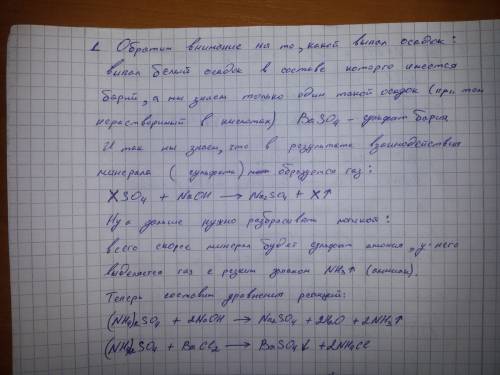 1. Обратим внимание на то, какой выпал осадок:
выпал белый осадок в составе которого имеется
барий, а мы знаем только один такой осадок (при том
нерастворимый в кислотах) BaSO₄ - сульфат бария
И так мы знаем, что в результате взаимодействия
минерала (сульфата) образуется газ:
XSO₄ + NaOH → Na₂SO₄ + X↑
Ну а дальше нужно разбрасывать логикой:
всего скорее минерал будет сульфат амония, у него
выделяется газ с резким запахом NH₃↑ (аммиак).
Теперь составим уравнения реакций:
(NH₄)₂SO₄ + 2NaOH → Na₂SO₄ + 2H₂O + 2NH₃↑
(NH₄)₂SO₄ + BaCl₂ → BaSO₄↓ + 2NH₄Cl